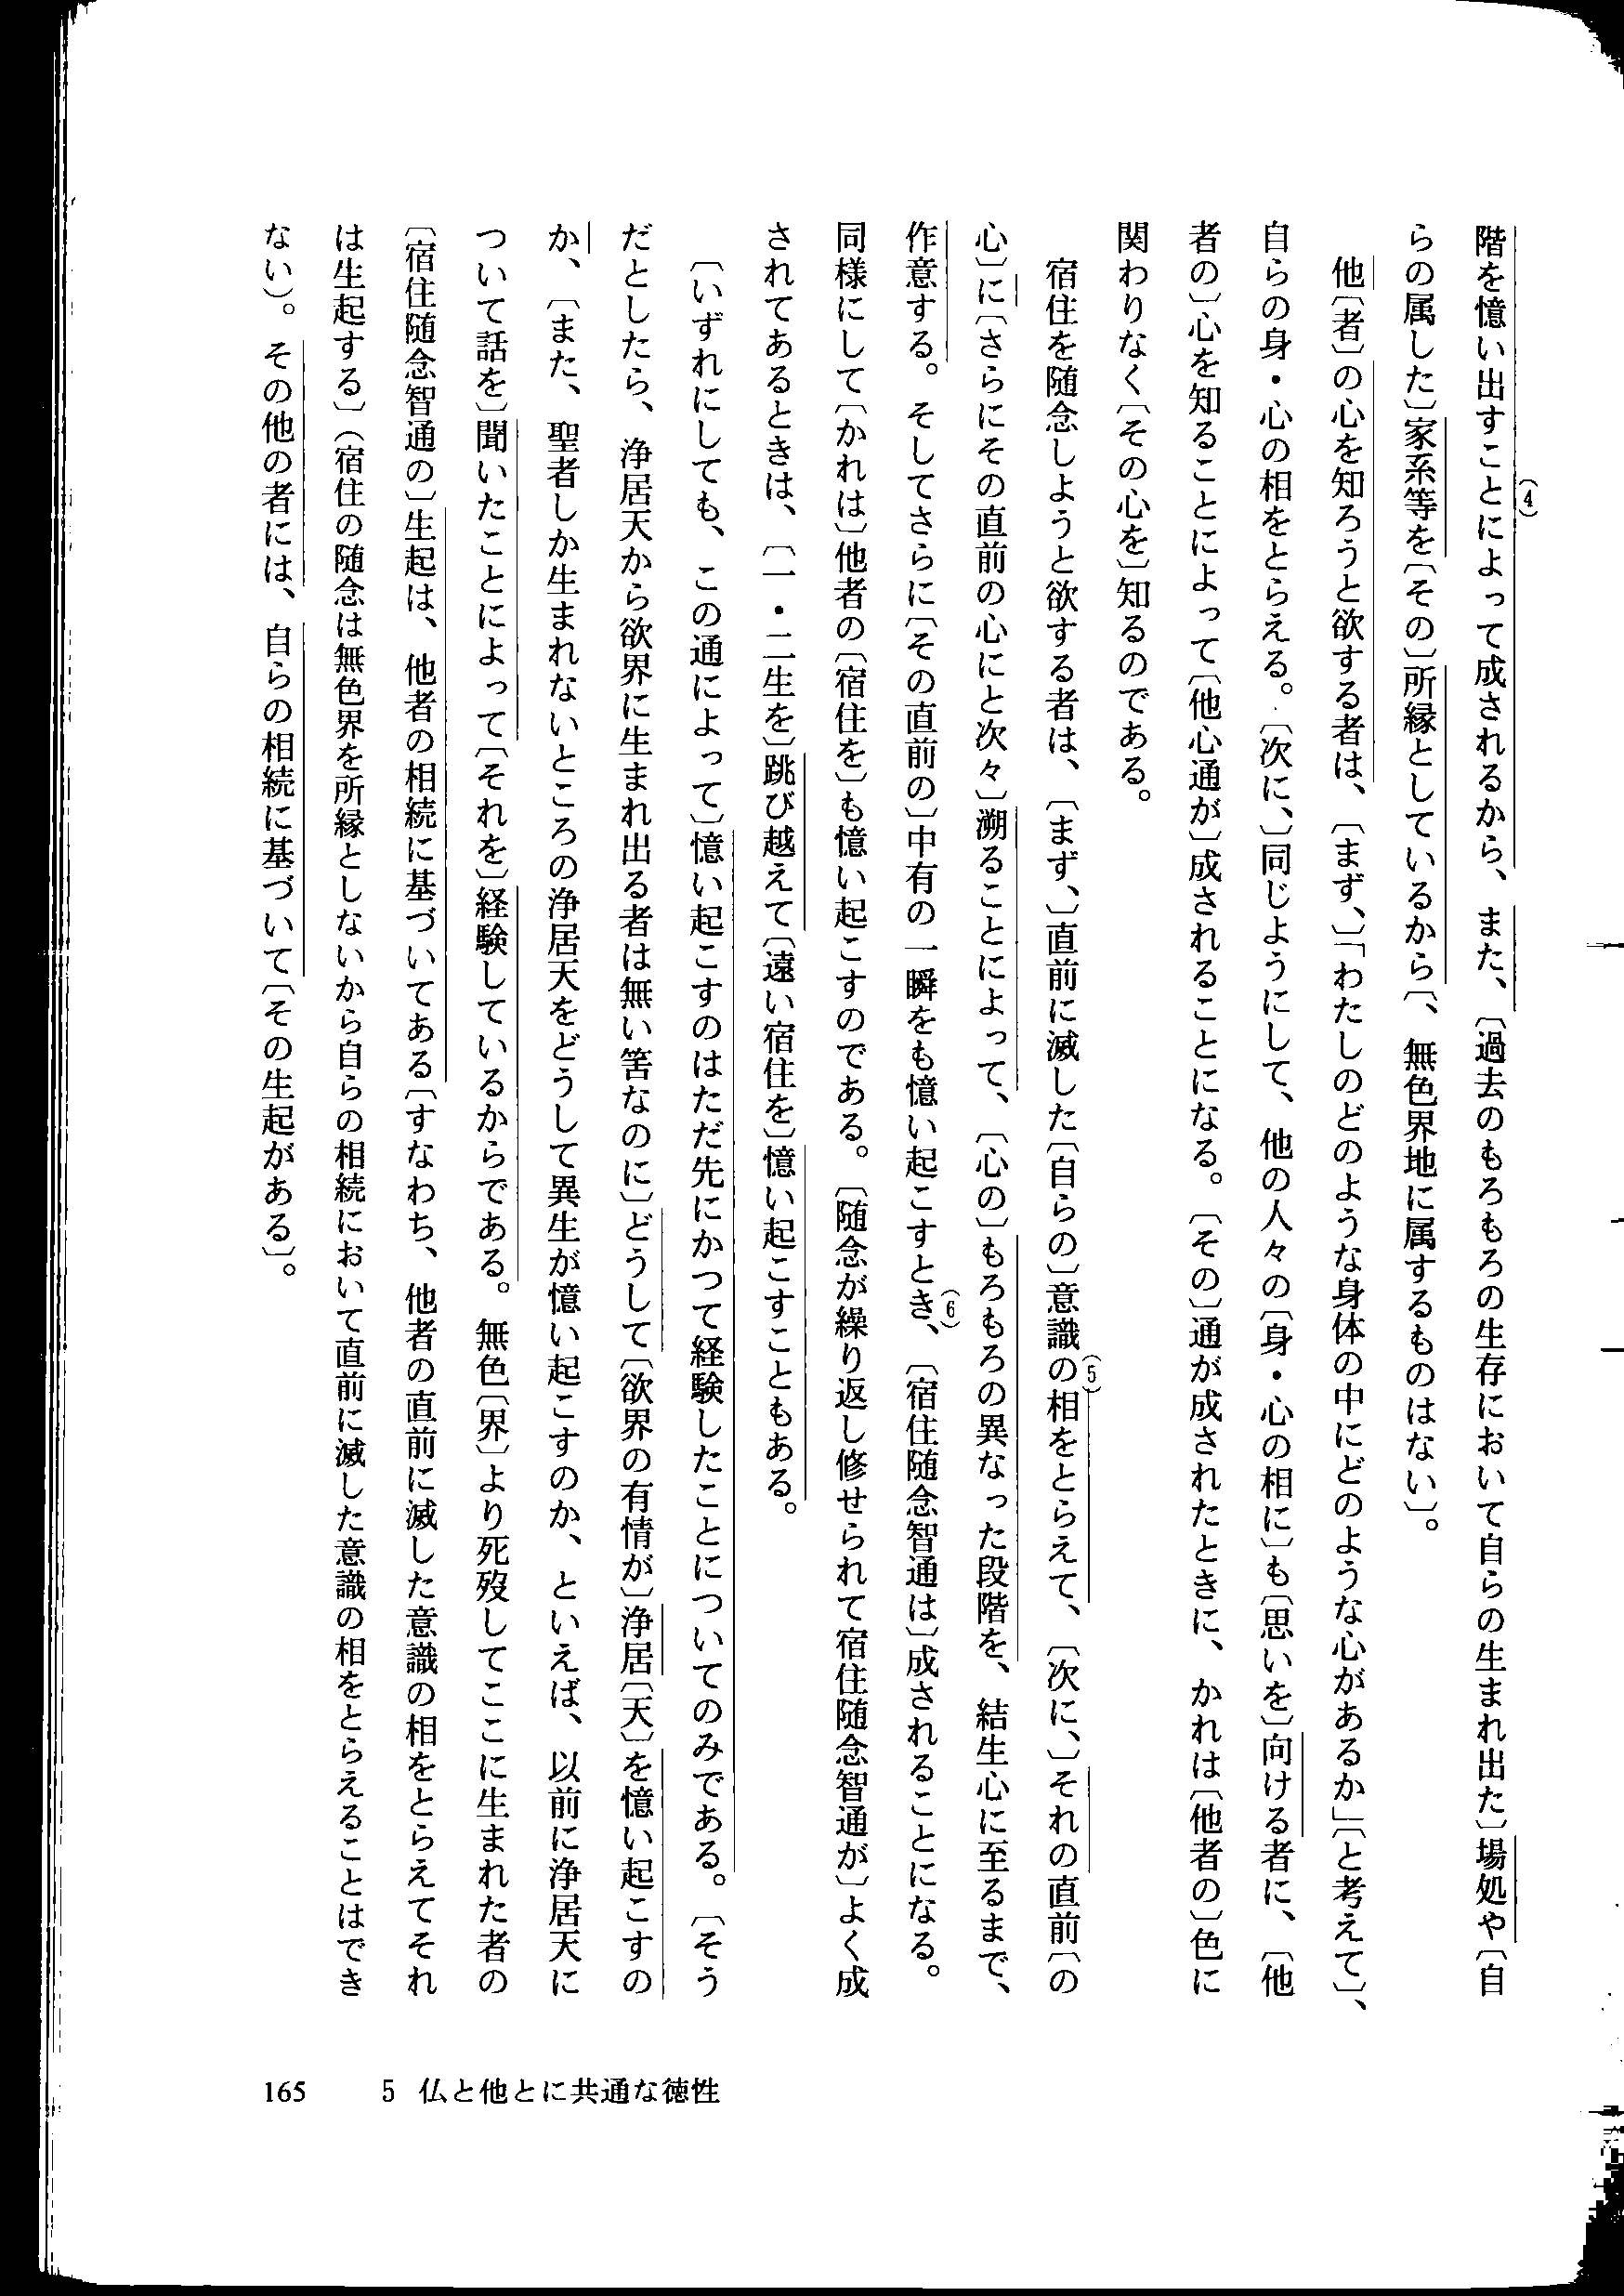 階を憶い出すことによって成されるから、また、〔過去のもろもろの生存において自らの生まれ出た〕場処や〔自
(4)
らの属した〕家系等を〔その〕所縁としているから〔、無色界地に属するものはない〕。
他〔者〕の心を知ろうと欲する者は、〔まず、〕「わたしのどのような身体の中にどのような心があるか」〔と考えて〕、
自らの身・心の相をとらえる。〔次に、〕同じようにして、他の人々の〔身・心の相に〕も〔思いを〕向ける者に、〔他
者の〕心を知ることによって〔他心通が〕成されることになる。〔その〕通が成されたときに、かれは〔他者の〕色に
関わりなく〔その心を〕知るのである。
宿住を随念しようと欲する者は、〔まず、〕直前に滅した〔自らの〕意識の相をとらえて、〔次に、〕それの直前〔の
(5)
心〕に〔さらにその直前の心にと次々〕溯ることによって、〔心の〕もろもろの異なった段階を、結生心に至るまで、
作意する。そしてさらに〔その直前の〕中有の一瞬をも憶い起こすとき、〔宿住随念智通は〕成されることになる。
(6)
同様にして〔かれは〕他者の〔宿住を〕も憶い起こすのである。〔随念が繰り返し修せられて宿住随念智通が〕よく成
されてあるときは、〔一・二生を〕跳び越えて〔遠い宿住を〕憶い起こすこともある。
〔いずれにしても、この通によって〕憶い起こすのはただ先にかつて経験したことについてのみである。〔そう
だとしたら、浄居天から欲界に生まれ出る者は無い筈なのに〕どうして〔欲界の有情が〕浄居〔天〕を憶い起こすの
か、〔また、聖者しか生まれないところの浄居天をどうして異生が憶い起こすのか、といえば、以前に浄居天に
ついて話を〕聞いたことによって〔それを〕経験しているからである。無色〔界〕より死歿してここに生まれた者の
〔宿住随念智通の〕生起は、他者の相続に基づいてある〔すなわち、他者の直前に滅した意識の相をとらえてそれ
は生起する〕（宿住の随念は無色界を所縁としないから自らの相続において直前に滅した意識の相をとらえることはでき
ない）。その他の者には、自らの相続に基づいて〔その生起がある〕。
165 5 仏と他とに共通な徳性